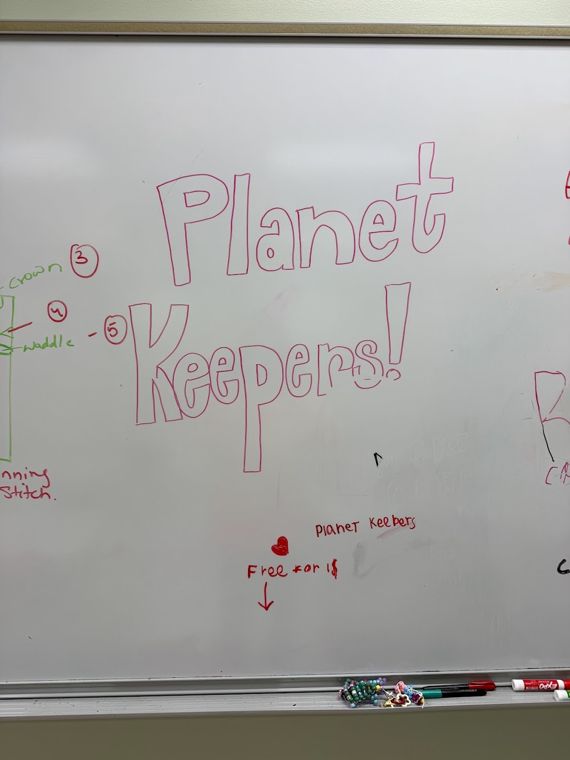 Planet
Keepers!
crown 3
4
waddle - 5
nning
Stitch.
Planet Keebers
Free or 1$
EXPO